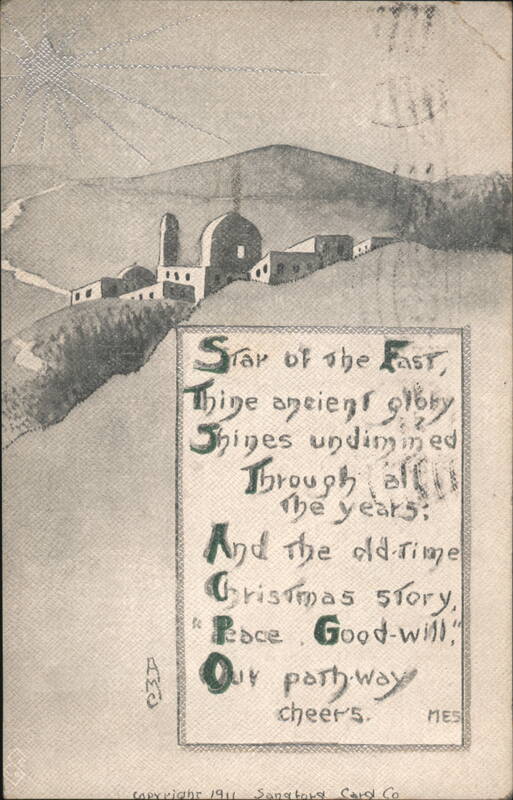 Star of the East,
Thine ancient glory
Shines undimmed
Through all
the years;
And the old-time
Christmas story,
"Peace, Good-will,"
Our path-way
cheers.
MES
AMC
Copyright 1911 Sandford Card Co